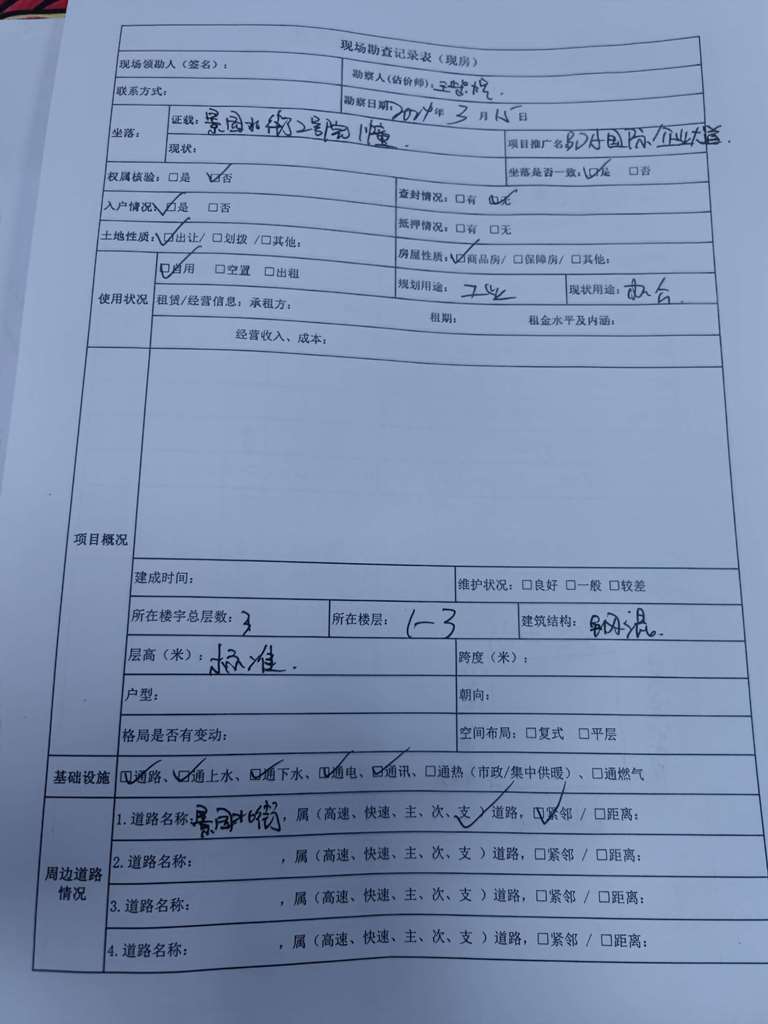 现场勘查记录表（现房）
现场领勘人（签名）： 勘察人(估价师):
联系方式： 勘察日期:2024年 3 月 15 日
坐落: 证载: 景园北街2号院 1幢 项目推广名:BDA国际企业大道.
现状: 坐落是否一致:☑是 □否
权属核验: □是 ☑否 查封情况: □有 ☑无
入户情况: ☑是 □否 抵押情况: □有 □无
土地性质: ☑出让/ □划拨 /□其他: 房屋性质: ☑商品房/ □保障房/ □其他:
使用状况 ☑自用 □空置 □出租 规划用途: 工业 现状用途: 办公.
租赁/经营信息: 承租方: 租期: 租金水平及内涵:
经营收入、成本:
项目概况
建成时间: 维护状况: □良好 □一般 □较差
所在楼宇总层数: 3 所在楼层: 1-3 建筑结构: 钢混.
层高（米）: 标准. 跨度（米）:
户型: 朝向:
格局是否有变动: 空间布局: □复式 □平层
基础设施 ☑通路、☑通上水、☑通下水、☑通电、☑通讯、□通热（市政/集中供暖）、□通燃气
周边道路情况 1.道路名称:景园北街, 属（高速、快速、主、次、支✓）道路, ☑紧邻 / □距离:
2.道路名称: , 属（高速、快速、主、次、支 ）道路, □紧邻 / □距离:
3.道路名称: , 属（高速、快速、主、次、支 ）道路, □紧邻 / □距离:
4.道路名称: , 属（高速、快速、主、次、支 ）道路, □紧邻 / □距离: